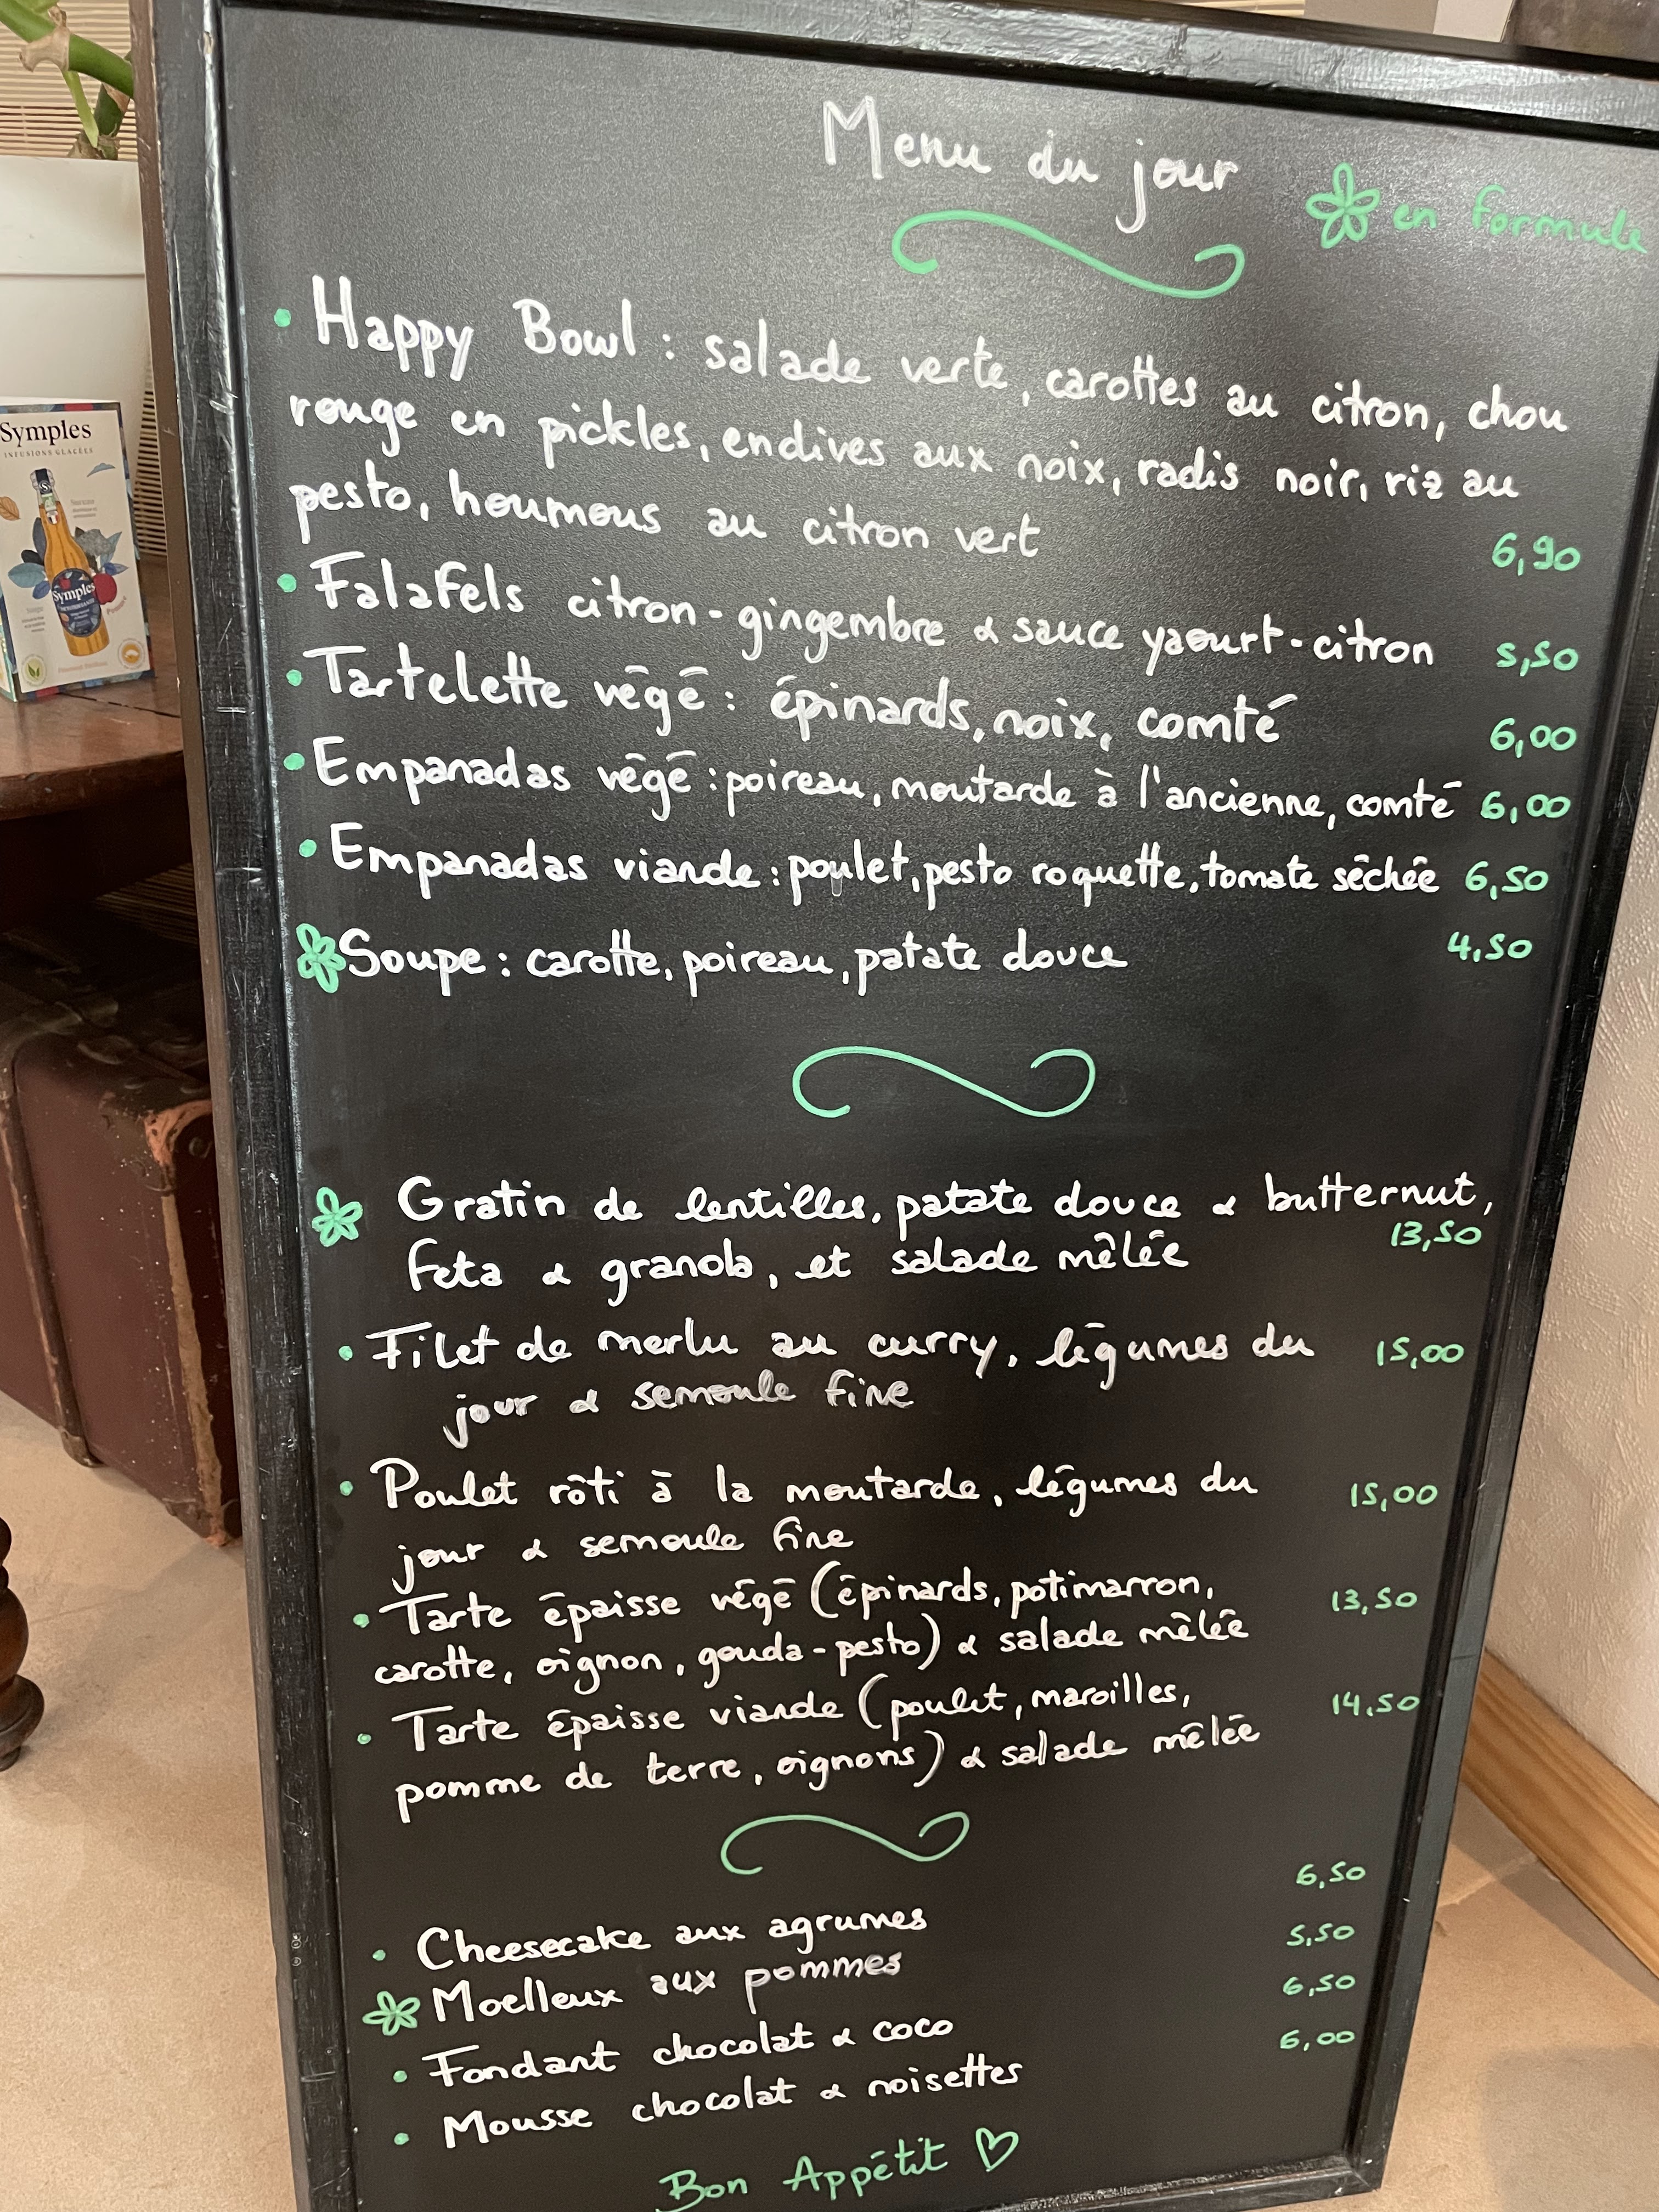 Menu du jour
en formule
Happy Bowl : salade verte, carottes au citron, chou
rouge en pickles, endives aux noix, radis noir, riz au
pesto, houmous au citron vert 6,90
Falafels citron-gingembre & sauce yaourt-citron 5,50
Tartelette végé : épinards, noix, comté 6,00
Empanadas végé : poireau, moutarde à l'ancienne, comté 6,00
Empanadas viande : poulet, pesto roquette, tomate séchée 6,50
Soupe : carotte, poireau, patate douce 4,50
Gratin de lentilles, patate douce & butternut,
feta & granola, et salade mêlée 13,50
Filet de merlu au curry, légumes du 15,00
jour & semoule fine
Poulet rôti à la moutarde, légumes du 15,00
jour & semoule fine
Tarte épaisse végé (épinards, potimarron, 13,50
carotte, oignon, gouda-pesto) & salade mêlée
Tarte épaisse viande (poulet, maroilles, 14,50
pomme de terre, oignons) & salade mêlée
Cheesecake aux agrumes 6,50
Moelleux aux pommes 5,50
Fondant chocolat & coco 6,50
Mousse chocolat & noisettes 6,00
Bon Appétit
Symples
INFUSIONS GLACÉES
Symples